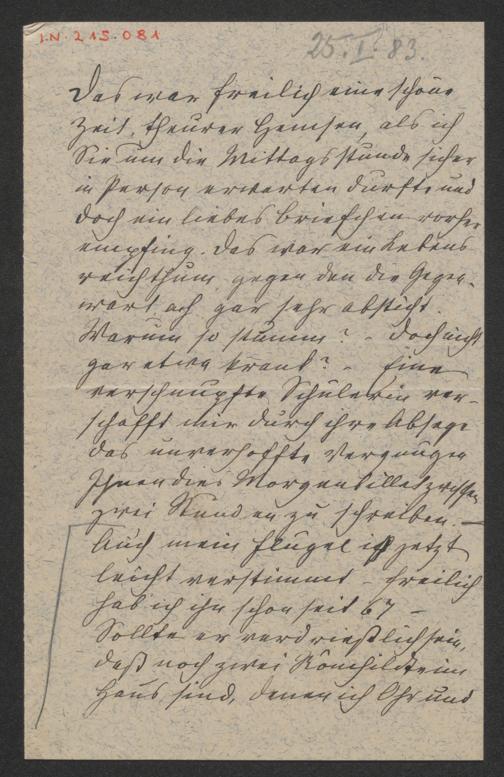 I.N. 215.081
25. I. 83.
Das war freilich eine schöne
Zeit, theurer Hemsen, als ich
Sie um die Mittagsstunde sicher
in Person erwarten durfte und
doch ein liebes Briefchen vorher
empfing. Das war ein Lebens
reichthum, gegen den die Gegen-
wart ach gar sehr absticht.
Warum so stumm? - doch nicht
gar etwa krank? - Eine
verschnupfte Schülerin ver-
schafft mir durch ihre Absage
das unverhoffte Vergnügen
Ihnen dies Morgenbillet zwischen
zwei Stunden zu schreiben. -
Auch mein Flügel ist jetzt
leicht verstimmt - freilich
hab ich ihn schon seit 67 -
Sollte er verdrießlich sein,
daß noch zwei Römhildte im
Haus sind, denen ich Ohr und